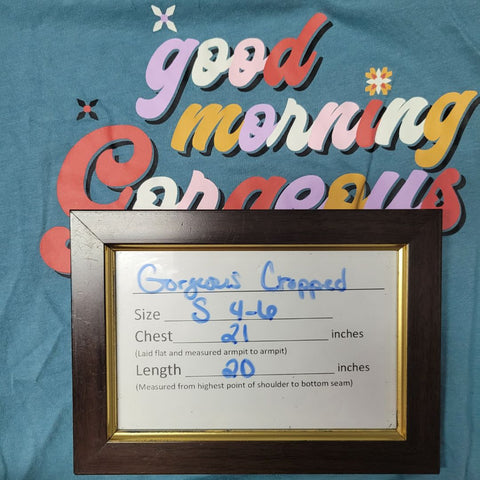 good
morning
Gorgeous
Gorgeous Cropped
Size S 4-6
Chest 21 inches
(Laid flat and measured armpit to armpit)
Length 20 inches
(Measured from highest point of shoulder to bottom seam)